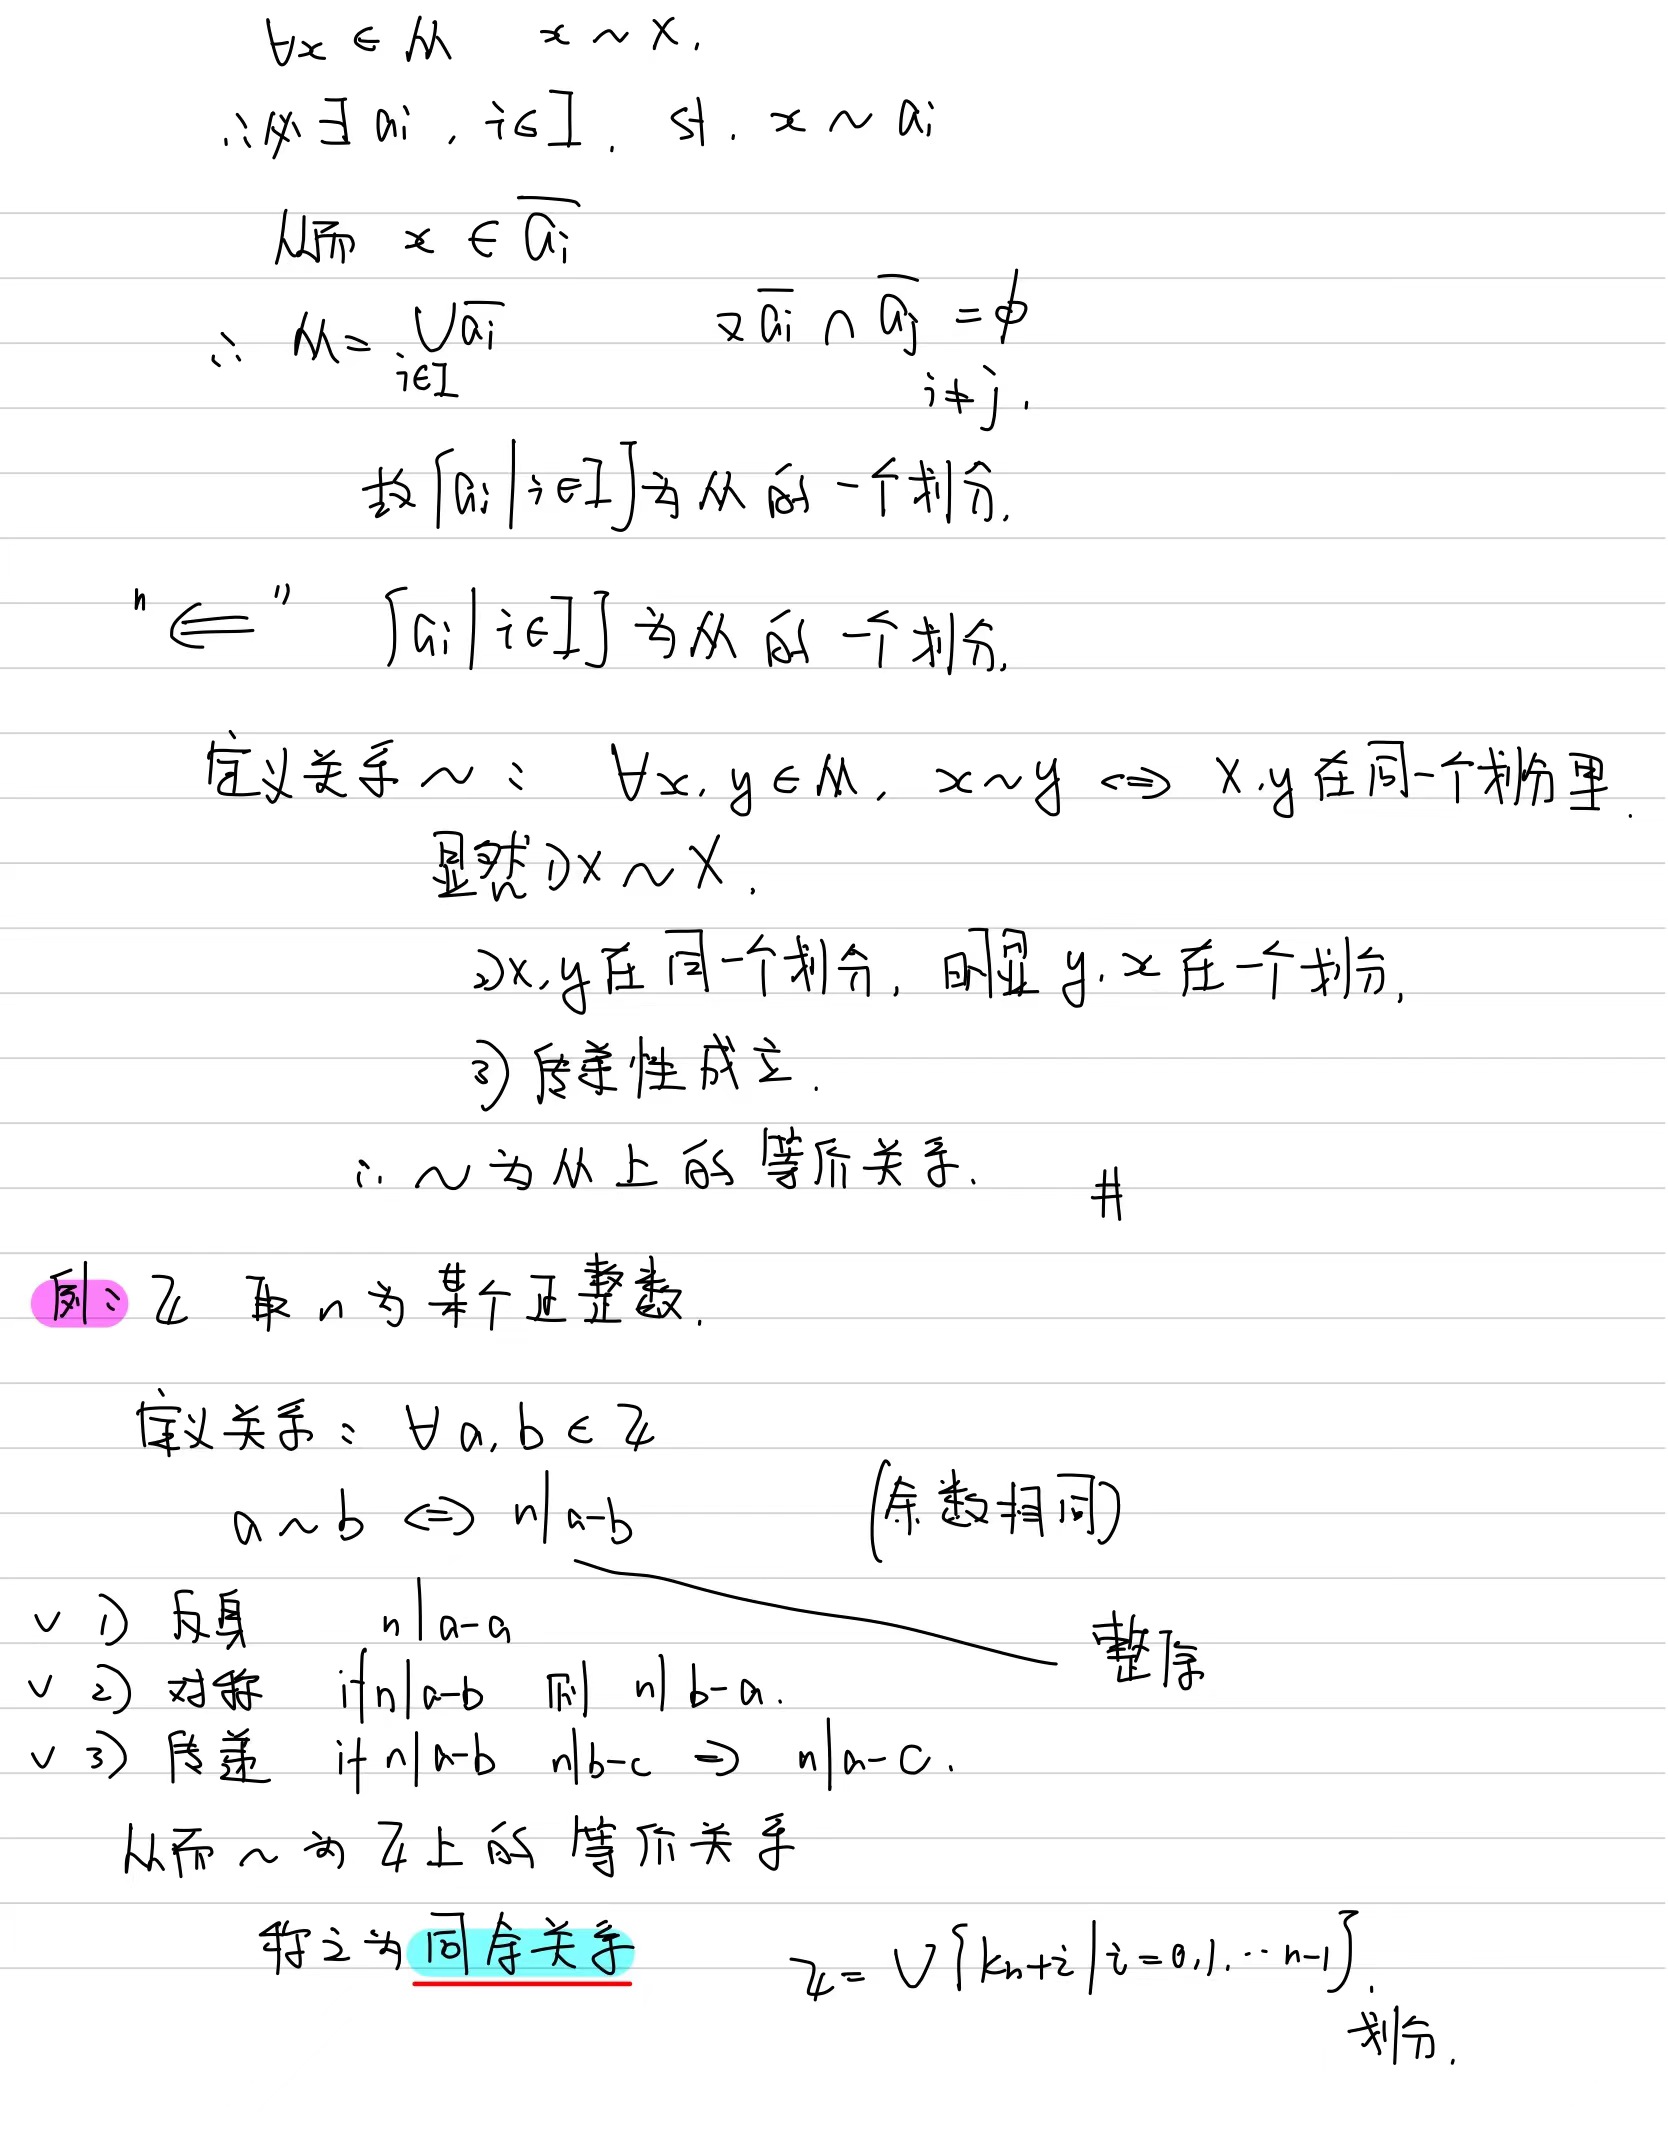 ∀x ∈ M x ~ x.
∴必∃ ai , i∈I . st. x ~ ai
从而 x ∈ \overline{ai}
∴ M = ∪_{i∈I} \overline{ai} 又 \overline{ai} ∩ \overline{aj} = ϕ i≠j.
故{ai | i∈I}为M的一个划分.
"⇐" {ai | i∈I}为M的一个划分.
定义关系 ~ : ∀x, y ∈ M, x ~ y ⇔ x, y在同一个划分里.
显然 1) x ~ x.
2) x, y在同一个划分, 明显 y, x在一个划分.
3) 传递性成立.
∴ ~ 为M上的等价关系. #
例: ℤ 取 n 为某个正整数.
定义关系: ∀ a, b ∈ ℤ
a ~ b ⇔ n|a-b (余数相同)
✓ 1) 反身 n|a-a 整除
✓ 2) 对称 if n|a-b 则 n|b-a.
✓ 3) 传递 if n|a-b n|b-c ⇒ n|a-c.
从而 ~ 为ℤ上的等价关系
称之为同余关系 ℤ = ∪{kn+i | i=0,1,…n-1}.
划分.